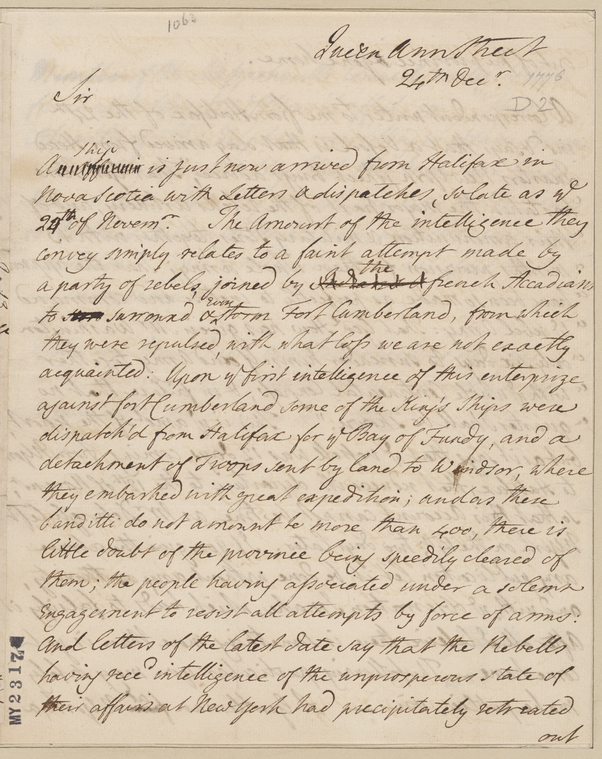 1063
Queen Ann Street
24th Decr. 1776
D 2
Sir
ship
A is just now arrived from Halifax in
Nova Scotia with Letters & dispatches, so late as ye
24th of Novemr. The Amount of the intelligence they
convey simply relates to a faint attempt made by
the
a party of rebels, joined by french Accadians
even
to surround, or storm Fort Cumberland, from which
they were repulsed, with what loss we are not exactly
acquainted: Upon ye first intelligence of this enterprize
against fort Cumberland some of the King's Ships were
dispatch'd from Halifax for ye Bay of Fundy, and a
detachment of Troops sent by land to Windsor, where
they embarked with great expedition; and as these
banditti do not amount to more than 400, there is
little doubt of the province being speedily cleared of
them; the people having associated under a solemn
Engagement to resist all attempts by force of arms:
And letters of the latest date say that the Rebells
having recd intelligence of the unprosperous state of
their affairs at New York had precipitately retreated
out
MY 2317